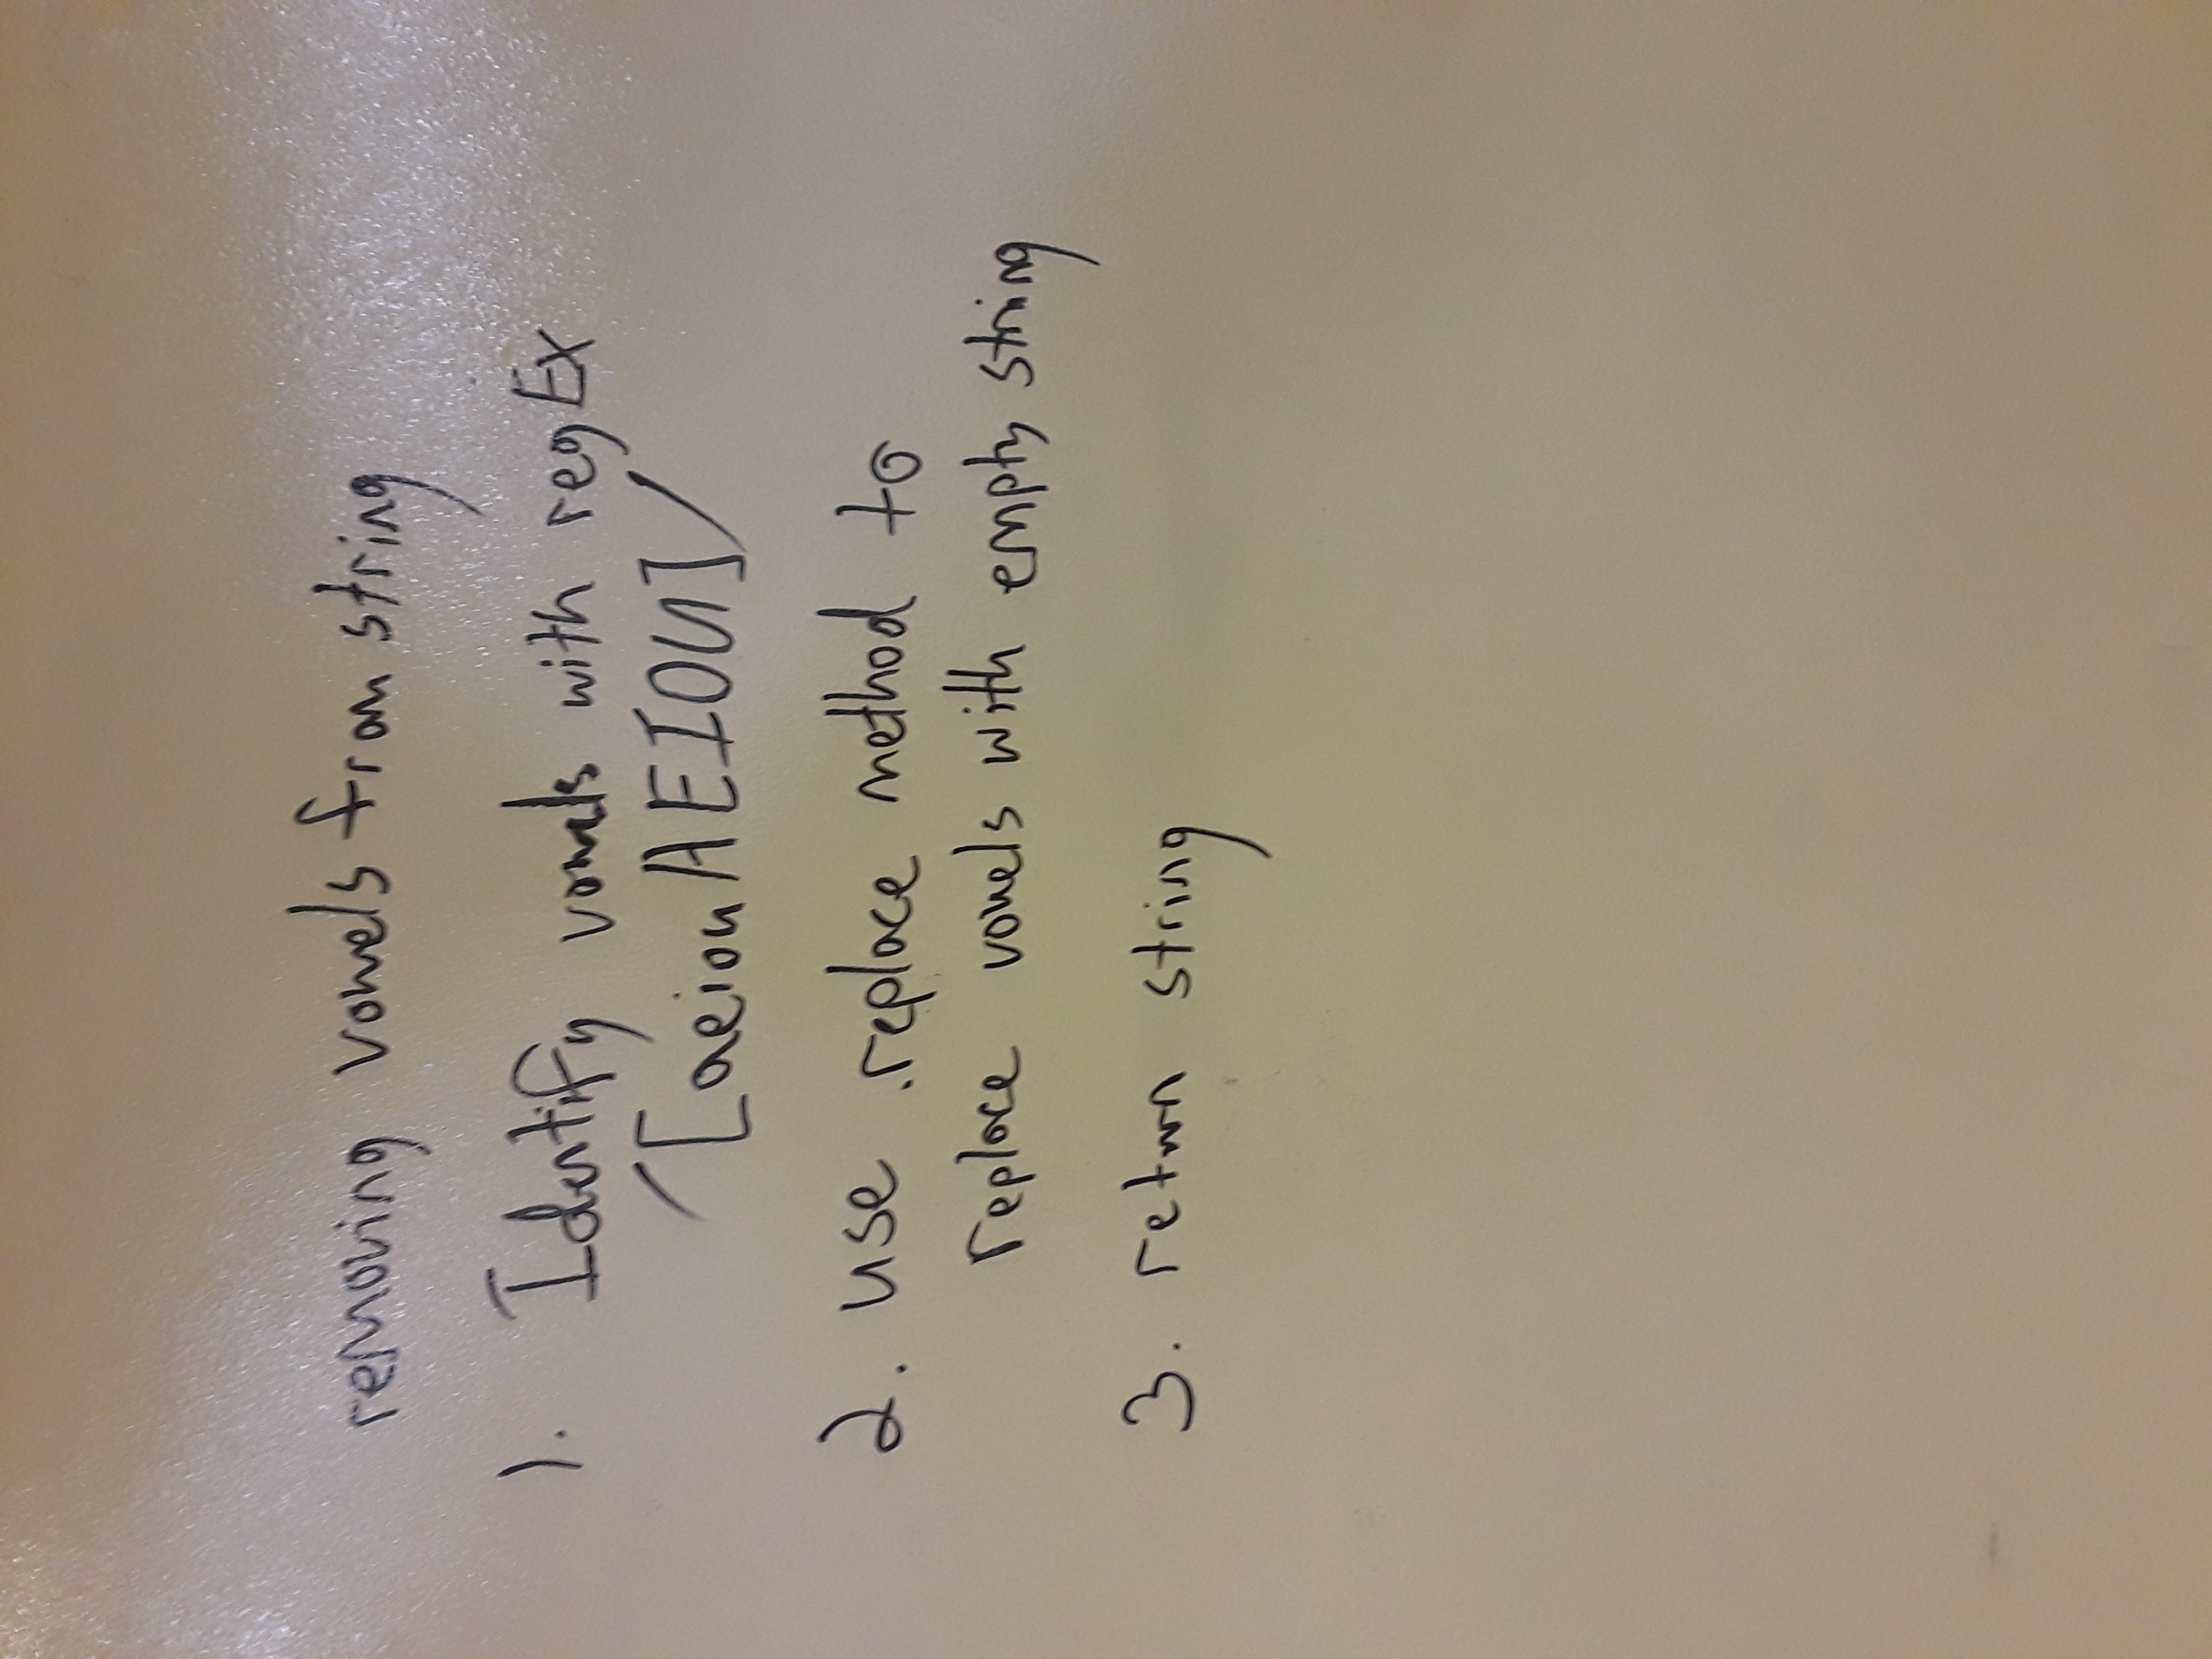 removing vowels from string
1. Identify vowels with regEx
/[aeiouAEIOU]/
2. use .replace method to
replace vowels with empty string
3. return string